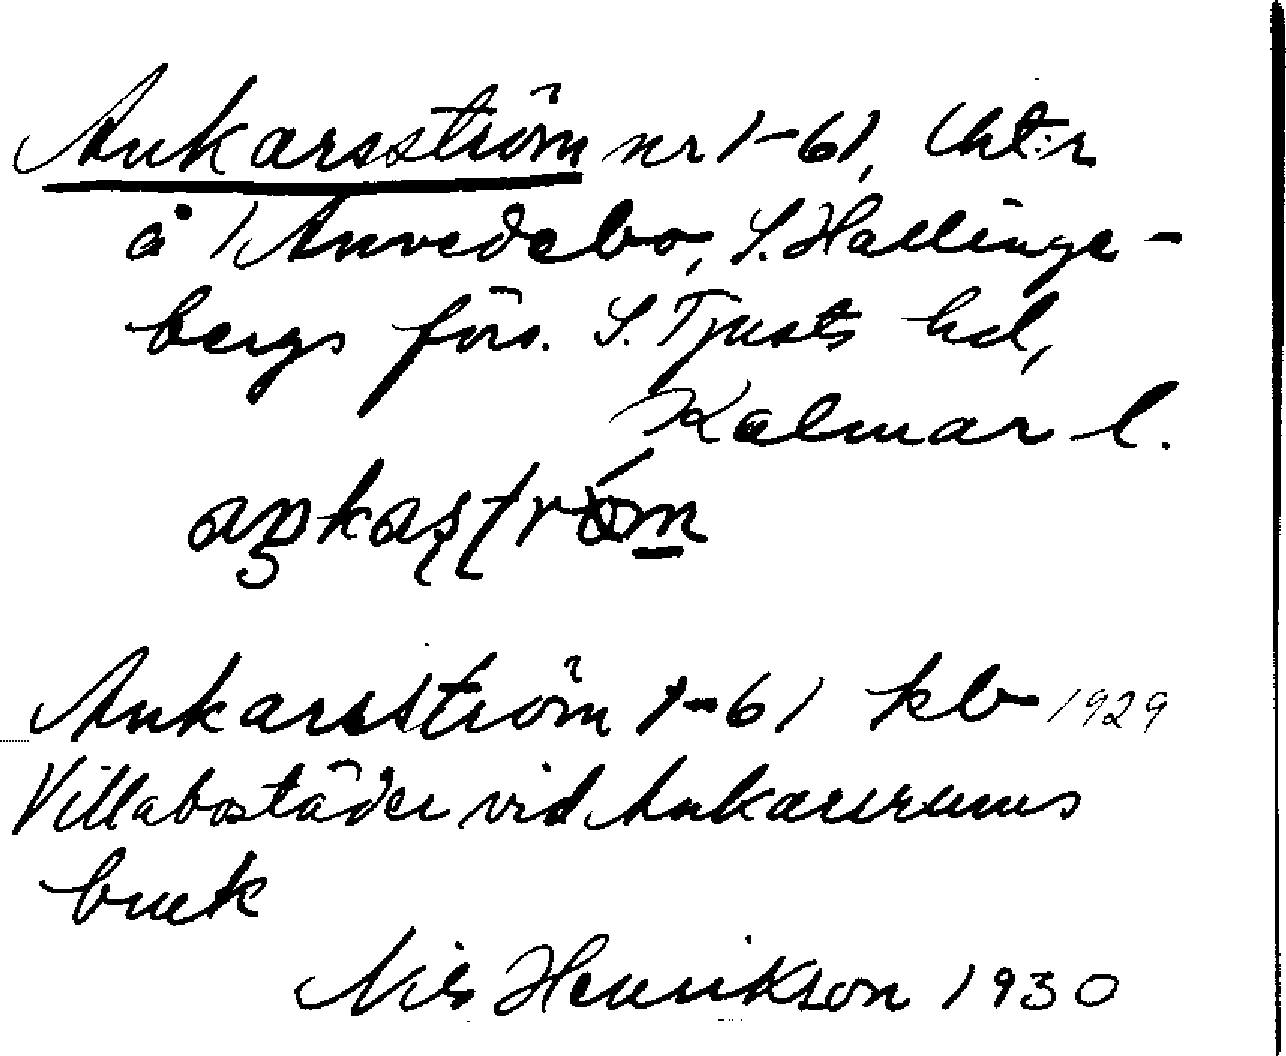 Ankarsström nr 1-61, lht:r
å 1 Anvedebo, S. Hallinge-
bergs förs. S. Tjusts hd,
Kalmar l.
aŋkaström
Ankarsström 1-61 kb 1929
Villabostäder vid Ankarsrums
bruk
Nils Henrikson 1930